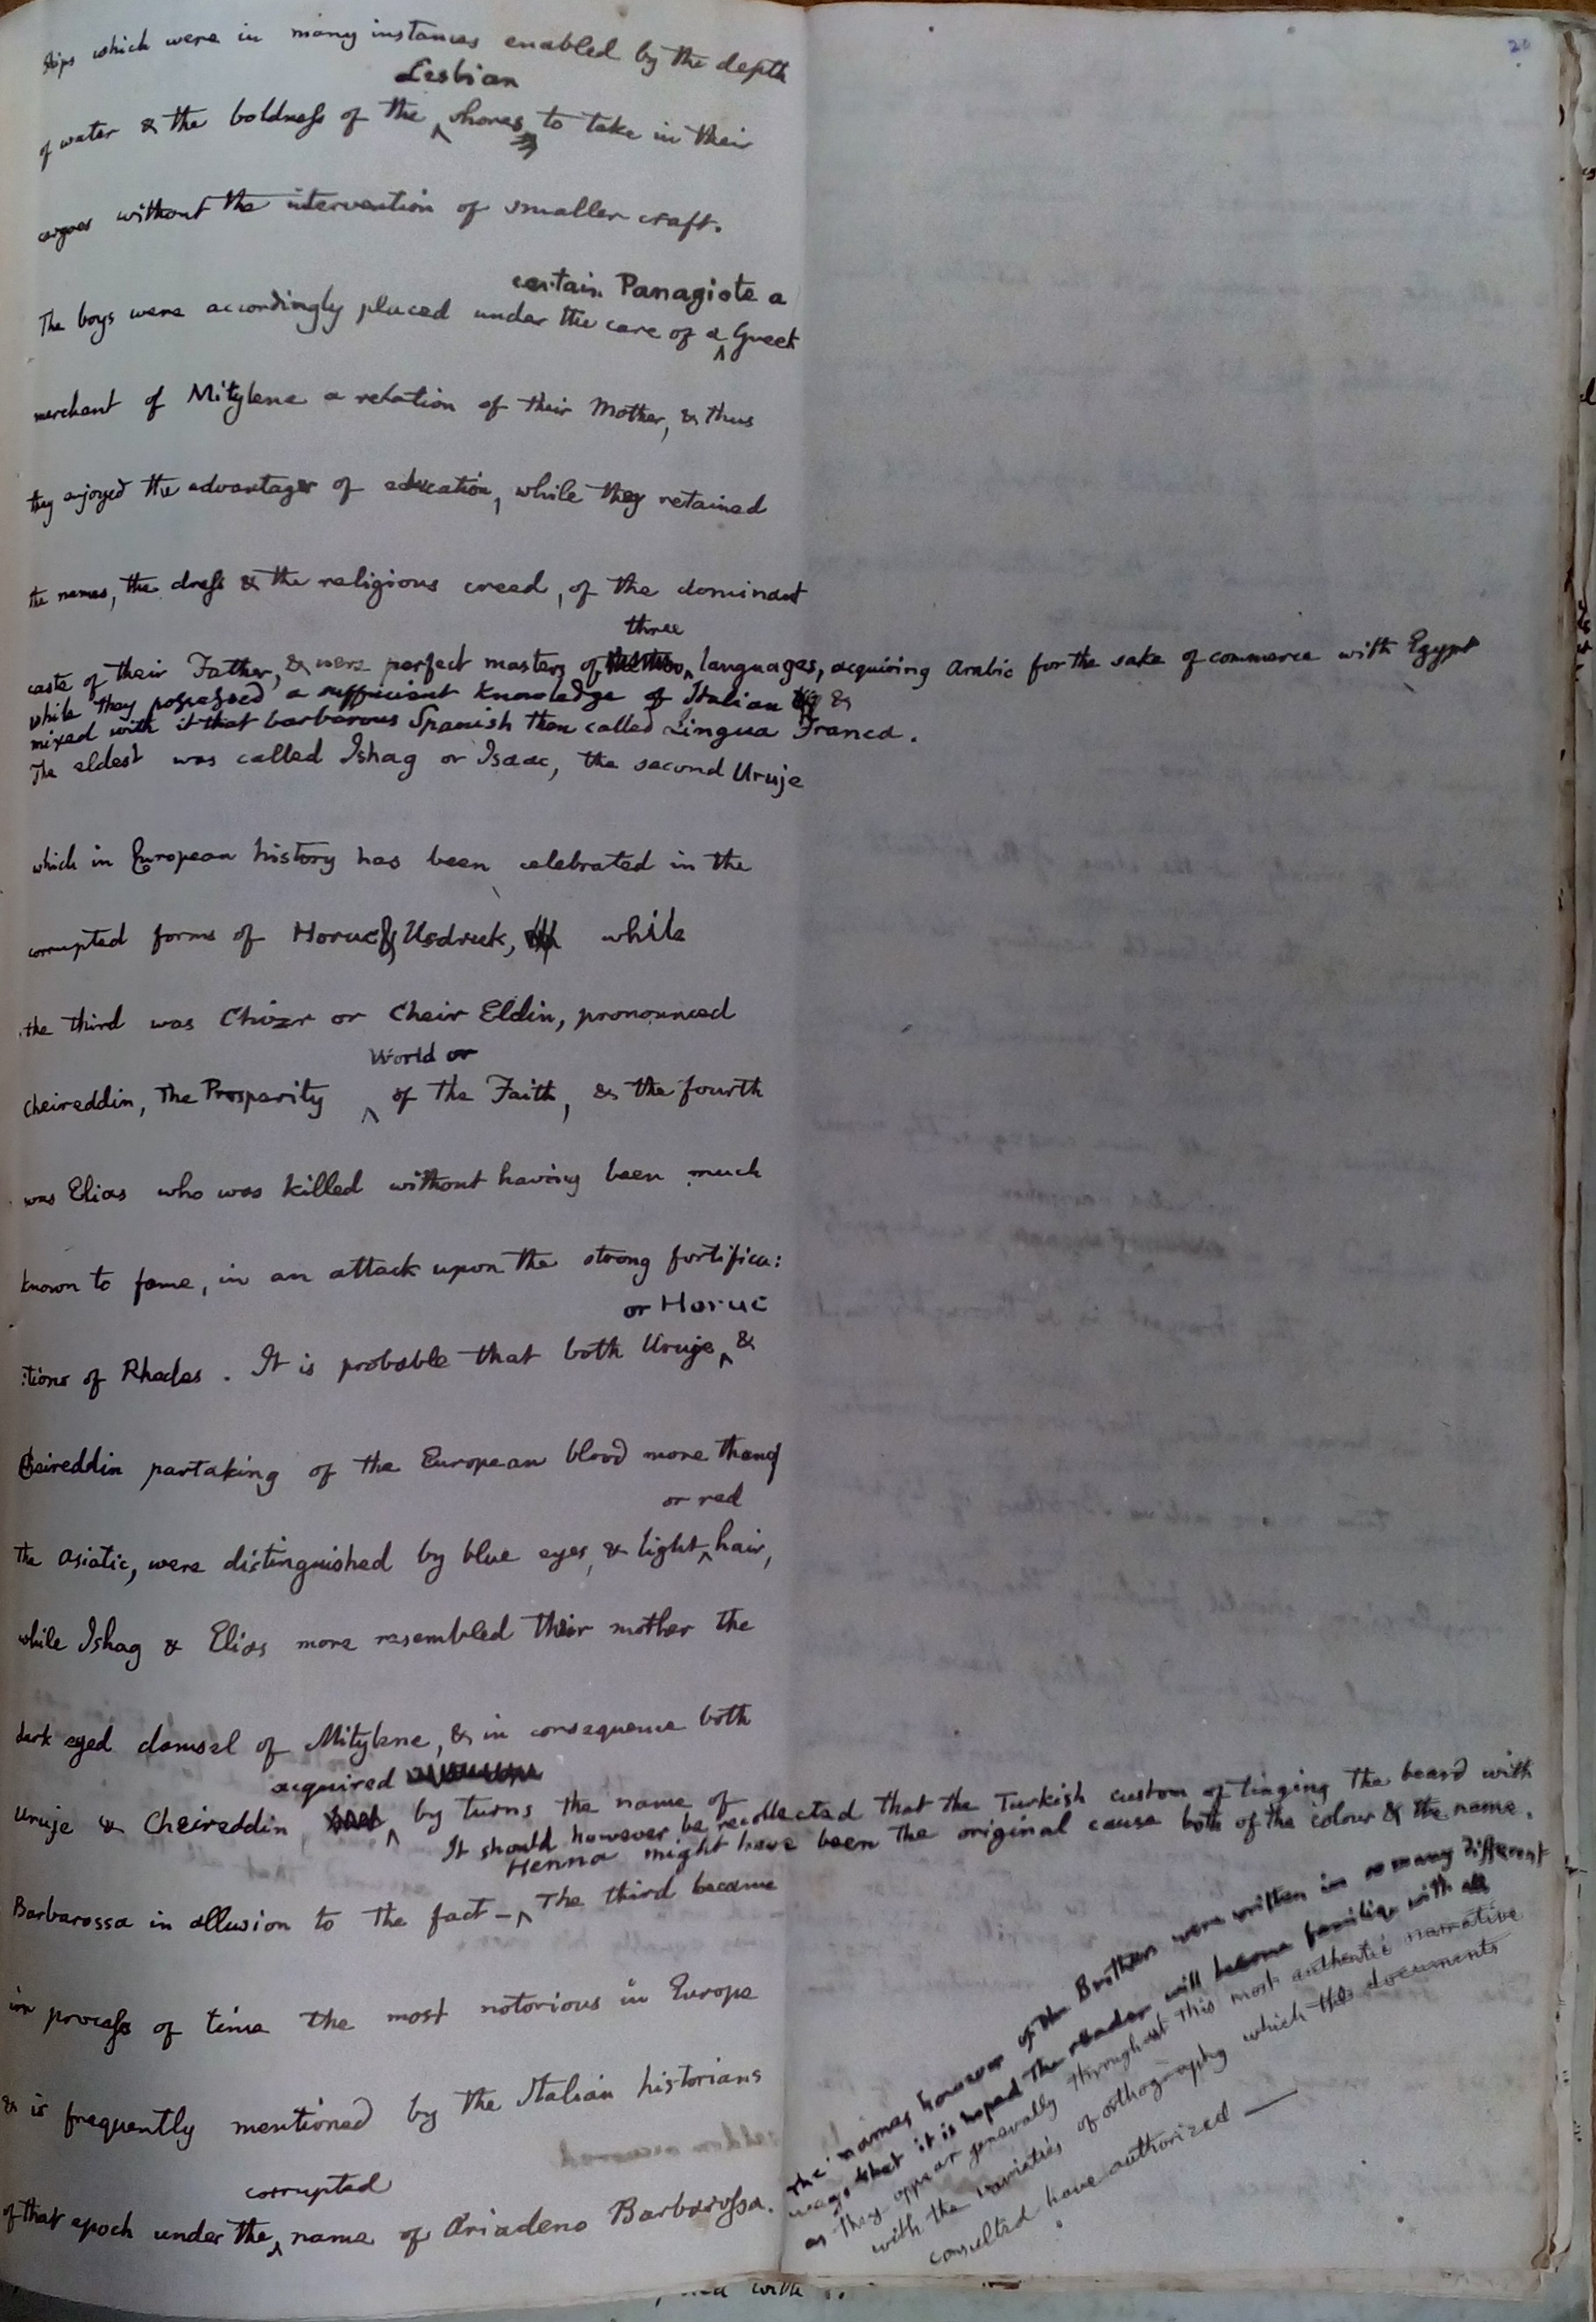 20
ships which were in many instances enabled by the depth
Lesbian
of water & the boldness of the ^ shores to take in their
cargoes without the intervention of smaller craft.
certain Panagiote a
The boys were accordingly placed under the care of a ^ Greek
merchant of Mitylene a relation of their Mother, & thus
they enjoyed the advantages of education, while they retained
the names, the dress & the religious creed, of the dominant
three
caste of their Father, & were perfect masters of ^ languages, acquiring Arabic for the sake of commerce with Egypt
while they possessed a sufficient knowledge of Italian &
mixed with it that barbarous Spanish then called Lingua Franca.
The eldest was called Ishag or Isaac, the second Uruje
which in European history has been celebrated in the
corrupted forms of Horuc & Usdruk, while
the third was Chizr or Cheir Eldin, pronounced
World or
Cheireddin, The Prosperity ^ of the Faith, & the fourth
was Elias who was killed without having been much
known to fame, in an attack upon the strong fortifica:
or Horuc
:tions of Rhodes. It is probable that both Uruje ^ &
Cheireddin partaking of the European blood more than
or red
the Asiatic, were distinguished by blue eyes, & light ^ hair,
while Ishag & Elias more resembled their mother the
dark eyed damsel of Mitylene, & in consequence both
acquired
Uruje & Cheireddin, ^ by turns the name of
It should however be recollected that the Turkish custom of tinging the beard with
Henna might have been the original cause both of the colour & the name.
Barbarossa in allusion to the fact - ^ The third became
in process of time the most notorious in Europe
& is frequently mentioned by the Italian historians
corrupted
of that epoch under the ^ name of Ariadeno Barbarossa.
The names however of the Brothers were written in so many different
ways that it is hoped the reader will become familiar with all
as they appear generally throughout this most authentic narrative
with the varieties of orthography which the documents
consulted have authorized —
with